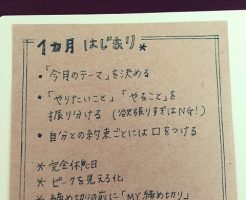 1ヵ月 はじまり*
・「今月のテーマ」を決める
・「やりたいこと」「やること」を
振り分ける (欲張りすぎはNG!)
・自分との約束ごとには口をつける
* 完全休息日
* ピークを見える化
* 締め切りの前に「MY締め切り」